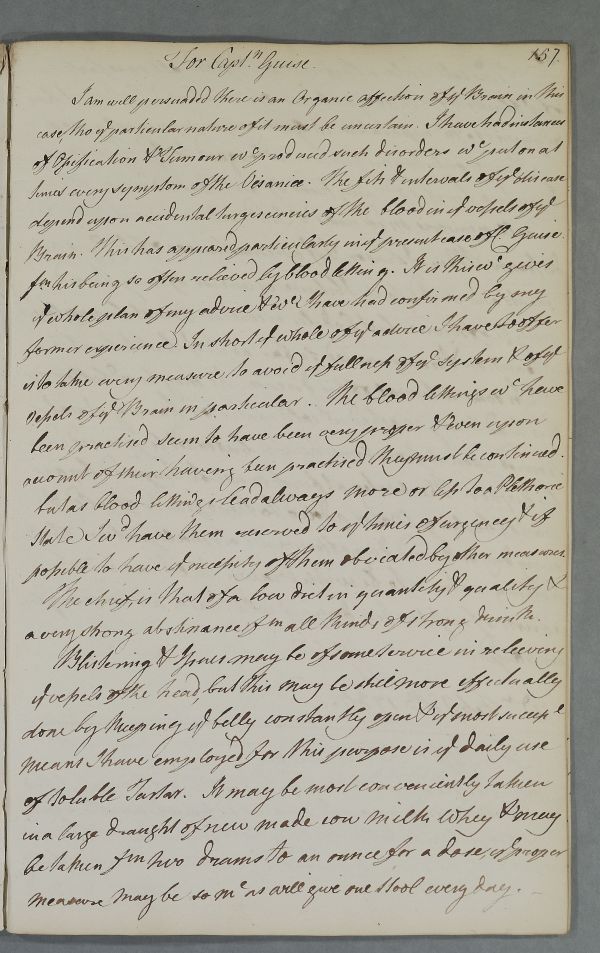 For Captn. Guise.
157.
I am well persuaded there is an Organic affection of ye Brain in this
case, tho ye particular nature of it must be uncertain. I have had instances
of Ossification & Tumour wc produced such disorders wc put on at
times every symptom of the Vesaniae. The fits & intervals of ye disease
depend upon accidental turgescencies of the blood in ye vessels of ye
Brain. This has appeared particularly in ye present case of C. Guise
fm his being so often relieved by blood letting. It is this wc gives
ye whole plan of my advice & wc I have had confirmed by my
former experience. In short ye whole of ye advice I have to offer
is to take every measure to avoid ye fullness of ye system & of ye
vessels of ye Brain in particular. The blood lettings wc have
been practised seem to have been very proper & even upon
account of their having been practised they must be continued.
but as blood lettings lead always more or less to a Plethoric
State I wd have them reserved to ye times of urgency & if
possible to have ye necessity of them obviated by other measures.
The chief is that of a low diet in quantity & quality &
a very strong abstinance fm all kinds of strong drink.
Blistering & Issues may be of some service in relieving
ye vessels of the head, but this may be still more effectually
done by keeping ye belly constantly open & ye most succepl
means I have employed for this purpose is ye daily use
of Soluble Tartar. It may be most conveniently taken
in a large draught of new made cow milk Whey & may
be taken fm two drams to an ounce for a dose, ye proper
measure may be so mc as will give one Stool every day.